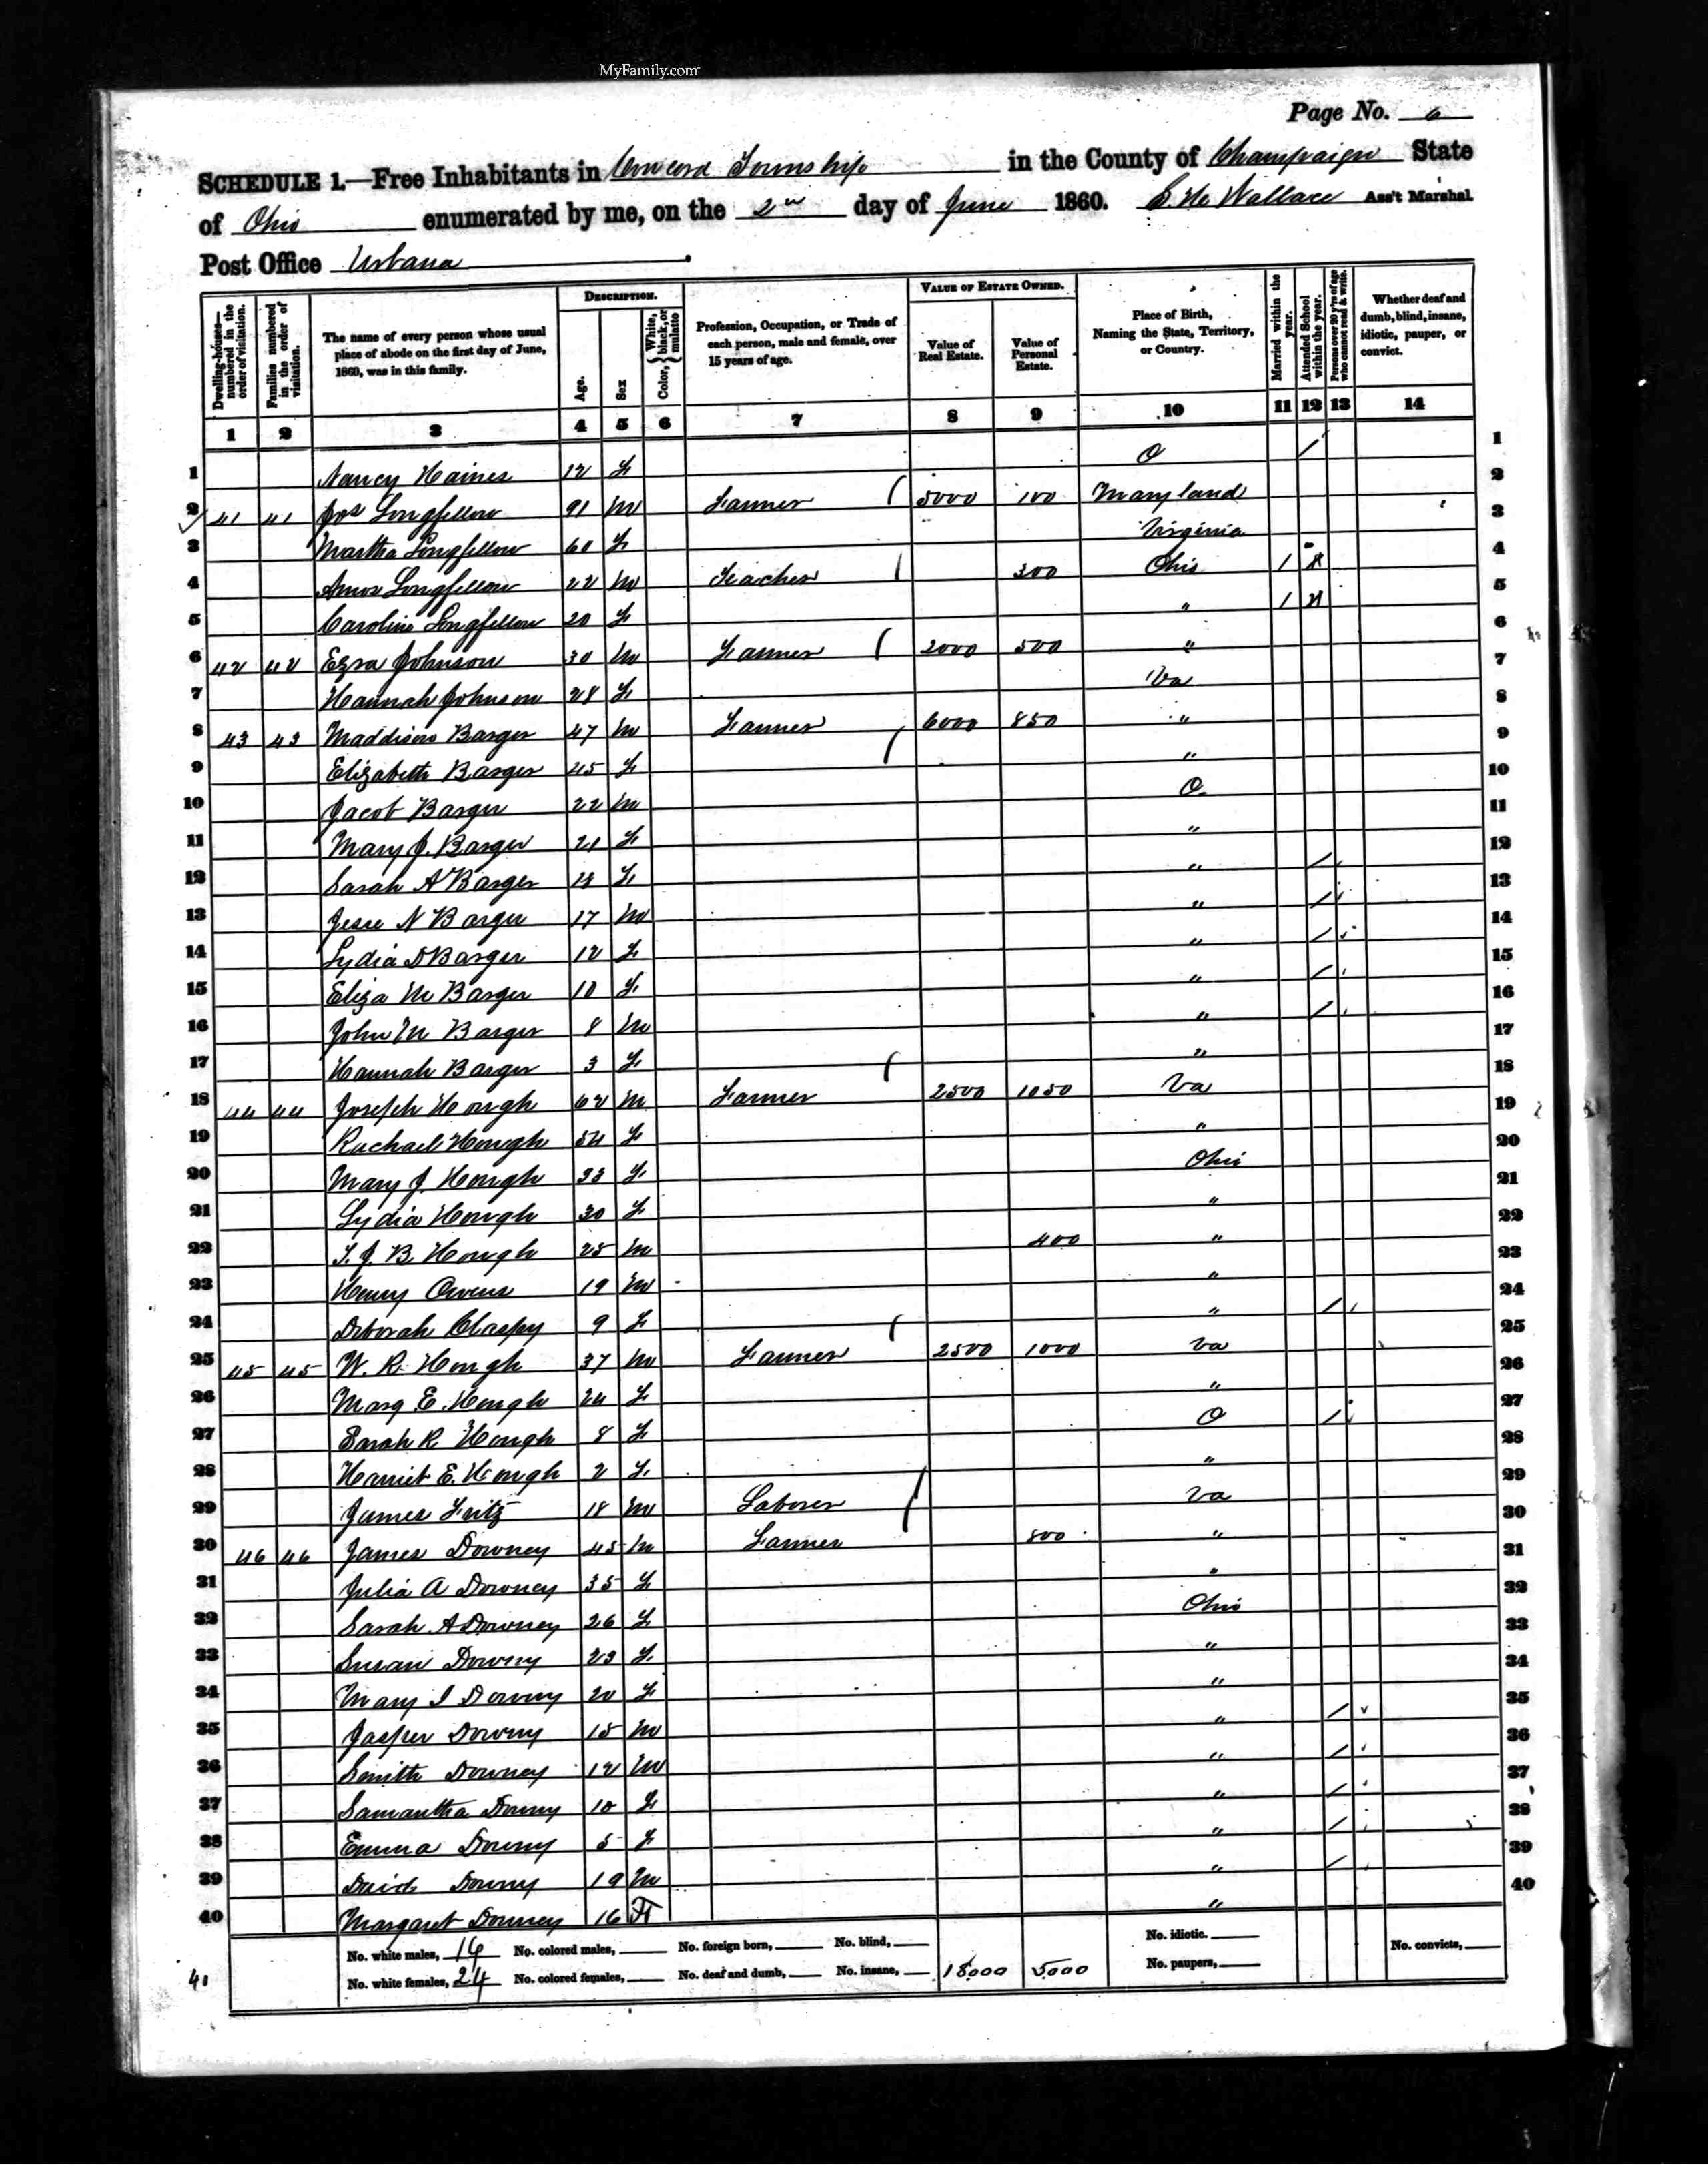 MyFamily.com
Page No. 6
SCHEDULE 1.—Free Inhabitants in Concord Township in the County of Champaign State
of Ohio enumerated by me, on the 2nd day of June 1860. Wallace Ass't Marshal
Post Office Urbana
Dwelling-houses—numbered in the order of visitation.
Families numbered in the order of visitation.
The name of every person whose usual place of abode on the first day of June, 1860, was in this family.
DESCRIPTION.
Age.
Sex
Color, { White, black, or mulatto
Profession, Occupation, or Trade of each person, male and female, over 15 years of age.
VALUE OF ESTATE OWNED.
Value of Real Estate.
Value of Personal Estate.
Place of Birth, Naming the State, Territory, or Country.
Married within the year.
Attended School within the year.
Persons over 20 y'rs of age who cannot read & write.
Whether deaf and dumb, blind, insane, idiotic, pauper, or convict.
1 2 3 4 5 6 7 8 9 10 11 12 13 14
1 Nancy Haines 12 f O / 1
2 41 41 Jos Longfellow 91 m Farmer 5000 100 Maryland 2
3 Martha Longfellow 60 f Virginia 3
4 Amos Longfellow 22 m Teacher 300 Ohio 1 4
5 Caroline Longfellow 20 f " 1 5
6 42 42 Ezra Johnson 30 m Farmer 2000 500 " 6
7 Hannah Johnson 28 f Va 7
8 43 43 Maddison Barger 47 m Farmer 6000 850 " 8
9 Elizabeth Barger 45 f " 9
10 Jacob Barger 22 m O 10
11 Mary J. Barger 21 f " 11
12 Sarah A Barger 18 f " / 12
13 Jesse N Barger 17 m " / 13
14 Lydia D Barger 12 f " / 14
15 Eliza M Barger 10 f " / 15
16 John M Barger 8 m " / 16
17 Hannah Barger 3 f " 17
18 44 44 Joseph Hough 62 m Farmer 2500 1050 Va 18
19 Rachael Hough 54 f " 19
20 Mary J. Hough 33 f Ohio 20
21 Lydia Hough 30 f " 21
22 T. J. B. Hough 25 m 400 " 22
23 Henry Owens 19 m " 23
24 Deborah 9 f " / 24
25 45 45 W. R. Hough 37 m Farmer 2500 1000 Va 25
26 Mary E. Hough 24 f " 26
27 Sarah R Hough 8 f O / 27
28 Harriet E. Hough 2 f " 28
29 James Fritz 18 m Laborer Va 29
30 46 46 James Downey 45 m Farmer 800 " 30
31 Julia A Downey 35 f " 31
32 Sarah A Downey 26 f Ohio 32
33 Susan Downy 23 f " 33
34 Mary I Downy 20 f " 34
35 Jasper Downy 15 m " / 35
36 Smith Downey 12 m " / 36
37 Samantha Downy 10 f " / 37
38 Emma Downy 5 f " / 38
39 David Downy 19 m " / 39
40 Margaret Downey 16 F " 40
No. white males, 16 No. colored males, No. foreign born, No. blind, No. idiotic. No. convicts,
41 No. white females, 24 No. colored females, No. deaf and dumb, No. insane, 18000 5000 No. paupers,